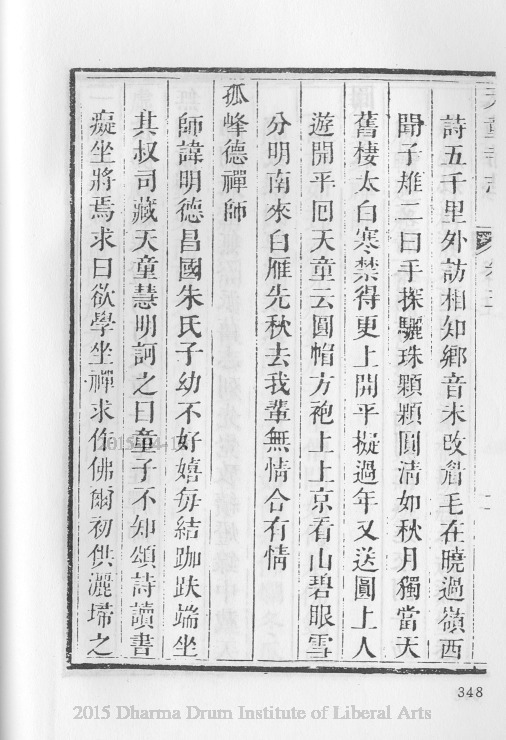 天童寺志
詩五千里外訪相知鄉音未改眉毛在曉過嶺西
聞子雉二曰手探驪珠顆顆圓清如秋月獨當天
舊棲太白寒禁得更上開平擬過年又送圓上人
遊開平囘天童云圓帽方袍上上京看山碧眼雪
分明南來白雁先秋去我輩無情合有情
孤峰德禪師
師諱明德昌國朱氏子幼不好嬉每結跏趺端坐
其叔司藏天童慧明訶之曰童子不知頌詩讀書
癡坐將焉求曰欲學坐禪求作佛爾初供灑埽之
348
2015 Dharma Drum Institute of Liberal Arts